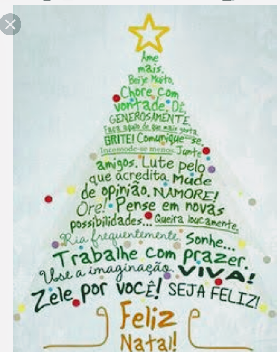 Ame
mais.
Beije Muito.
Chore com
vontade. Dê
GENEROSAMENTE.
Faça aquilo de que mais gosta.
GRITE! Comunique-se.
Incomode-se menos. Junte
amigos. Lute pelo
que acredita. Mude
de opinião. NAMORE!
Ore! Pense em novas
possibilidades... Queira loucamente.
Ria frequentemente. Sonhe...
Trabalhe com prazer.
Use a imaginação. VIVA!
Zele por você! SEJA FELIZ!
Feliz
Natal!